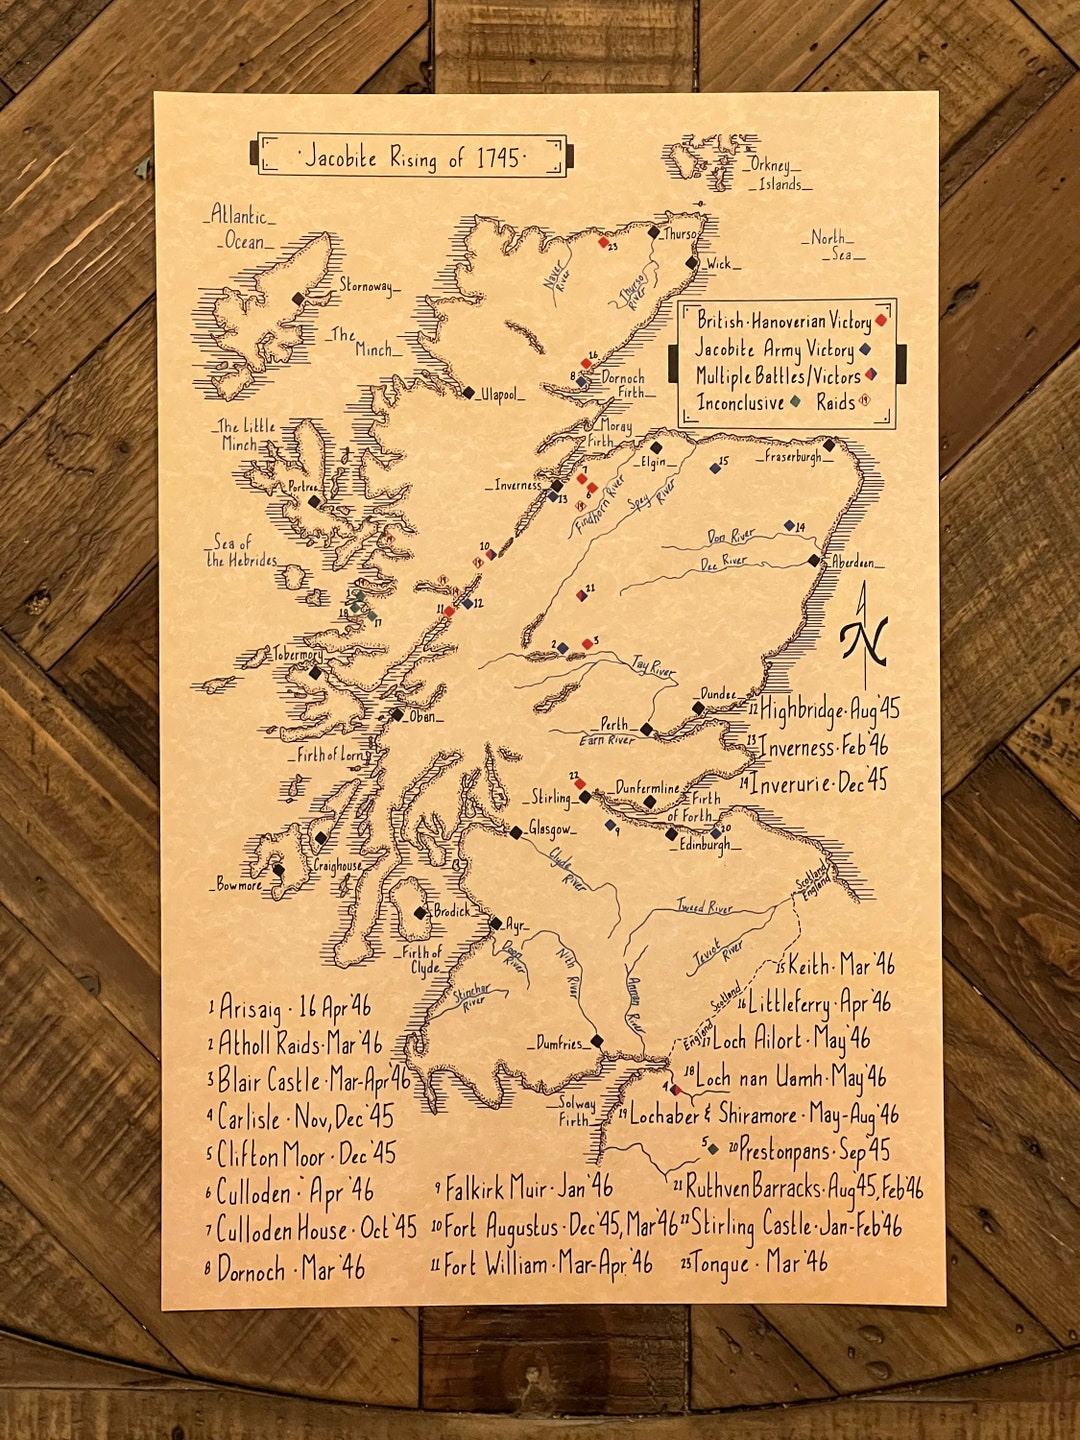 ·Jacobite Rising of 1745·
Orkney
Islands
Atlantic
Ocean
North
Sea
Thurso
23
Wick
Naver
River
Thurso
River
Stornoway
The
Minch
British·Hanoverian Victory
Jacobite Army Victory
Multiple Battles/Victors
Inconclusive Raids 19
16
8
Dornoch
Firth
Ulapool
The Little
Minch
Moray
Firth
Elgin
Fraserburgh
15
7
Inverness
6
13
19
Portree
Findhorn River
Spey
River
14
Don River
Dee River
Aberdeen
Sea of
the Hebrides
19
10
19
19
19
21
1
18
17
11
12
N
2
3
Tobermory
Tay River
Dundee
Oban
Perth
Earn River
Firth of Lorn
22
Stirling
Dunfermline
Firth
of Forth
9
20
Edinburgh
Glasgow
Clyde
River
Craighouse
Bowmore
Scotland
England
Brodick
Tweed River
Ayr
Firth of
Clyde
Doon
River
Nith River
Teviot
River
Annan River
Stinchar
River
Scotland
England
Dumfries
Solway
Firth
4
5
1 Arisaig · 16 Apr '46
2 Atholl Raids·Mar '46
3 Blair Castle·Mar-Apr'46
4 Carlisle · Nov, Dec '45
5 Clifton Moor · Dec '45
6 Culloden · Apr '46
7 Culloden House · Oct '45
8 Dornoch · Mar '46
9 Falkirk Muir · Jan '46
10 Fort Augustus · Dec'45, Mar'46
11 Fort William · Mar-Apr '46
12 Highbridge·Aug'45
13 Inverness·Feb'46
14 Inverurie·Dec'45
15 Keith · Mar '46
16 Littleferry · Apr '46
17 Loch Ailort · May '46
18 Loch nan Uamh·May'46
19 Lochaber & Shiramore · May-Aug '46
20 Prestonpans · Sep '45
21 Ruthven Barracks·Aug'45, Feb'46
22 Stirling Castle·Jan-Feb'46
23 Tongue · Mar '46